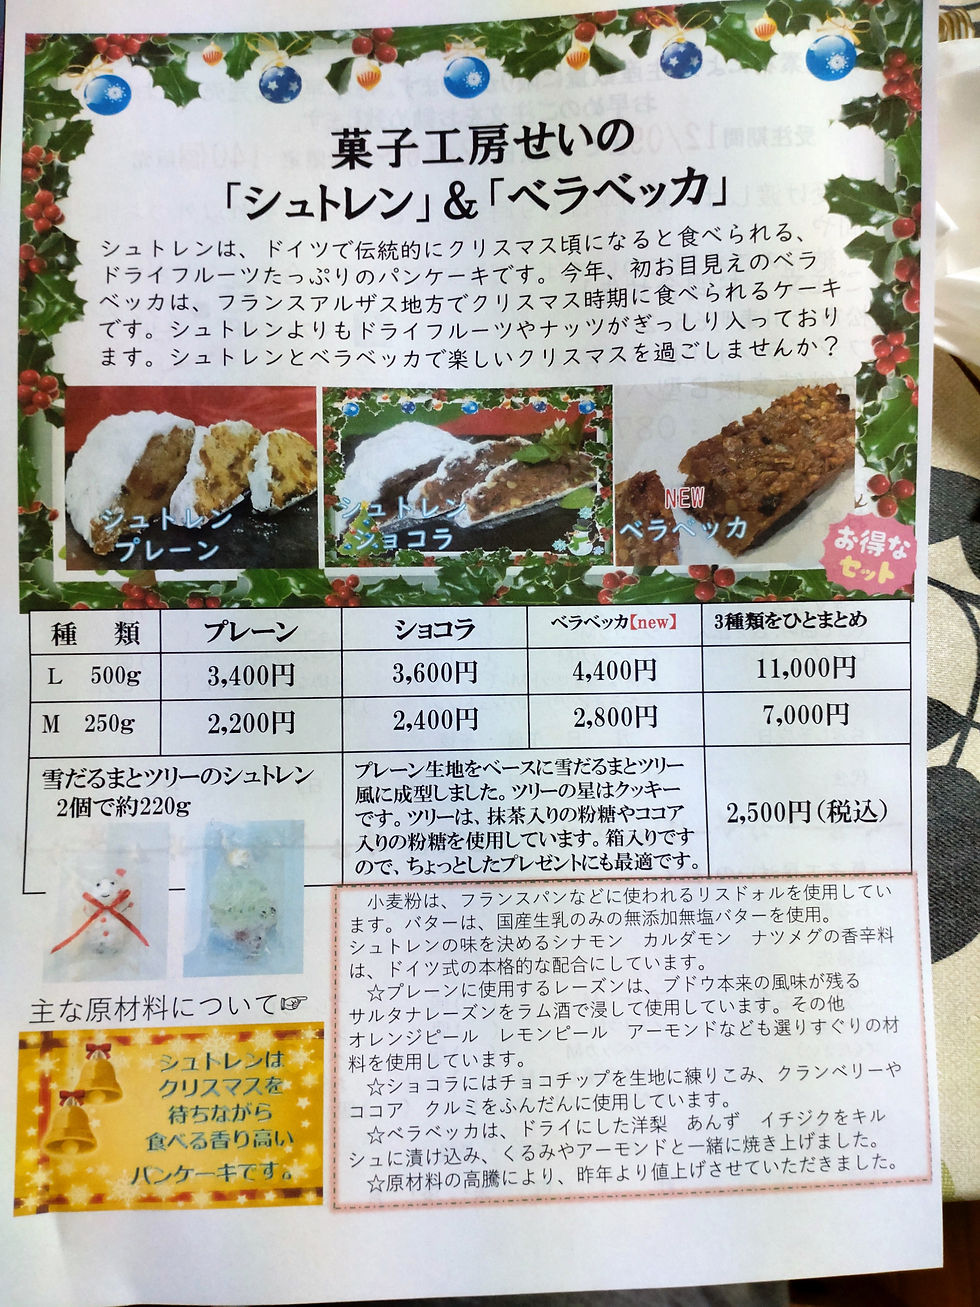 菓子工房せいの
「シュトレン」＆「ベラベッカ」
シュトレンは、ドイツで伝統的にクリスマス頃になると食べられる、
ドライフルーツたっぷりのパンケーキです。今年、初お目見えのベラ
ベッカは、フランスアルザス地方でクリスマス時期に食べられるケーキ
です。シュトレンよりもドライフルーツやナッツがぎっしり入っており
ます。シュトレンとベラベッカで楽しいクリスマスを過ごしませんか？
シュトレン
プレーン
シュトレン
ショコラ
NEW
ベラベッカ
お得な
セット
種　類　プレーン　ショコラ　ベラベッカ【new】　3種類をひとまとめ
L　500g　3,400円　3,600円　4,400円　11,000円
M　250g　2,200円　2,400円　2,800円　7,000円
雪だるまとツリーのシュトレン
2個で約220g
プレーン生地をベースに雪だるまとツリー
風に成型しました。ツリーの星はクッキー
です。ツリーは、抹茶入りの粉糖やココア
入りの粉糖を使用しています。箱入りです
ので、ちょっとしたプレゼントにも最適です。
2,500円（税込）
小麦粉は、フランスパンなどに使われるリスドォルを使用してい
ます。バターは、国産生乳のみの無添加無塩バターを使用。
シュトレンの味を決めるシナモン　カルダモン　ナツメグの香辛料
は、ドイツ式の本格的な配合にしています。
☆プレーンに使用するレーズンは、ブドウ本来の風味が残る
サルタナレーズンをラム酒で浸して使用しています。その他
オレンジピール　レモンピール　アーモンドなども選りすぐりの材
料を使用しています。
☆ショコラにはチョコチップを生地に練りこみ、クランベリーや
ココア　クルミをふんだんに使用しています。
☆ベラベッカは、ドライにした洋梨　あんず　イチジクをキル
シュに漬け込み、くるみやアーモンドと一緒に焼き上げました。
☆原材料の高騰により、昨年より値上げさせていただきました。
主な原材料について☞
シュトレンは
クリスマスを
待ちながら
食べる香り高い
パンケーキです。